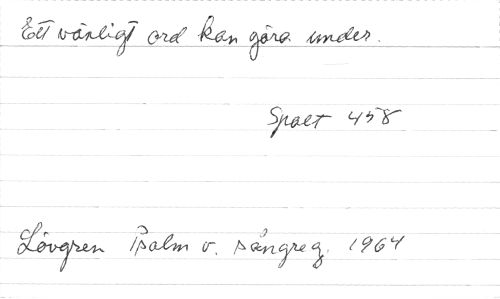 Ett vänligt ord kan göra under.
Spalt 458
Lövgren Psalm o. sångreg. 1964